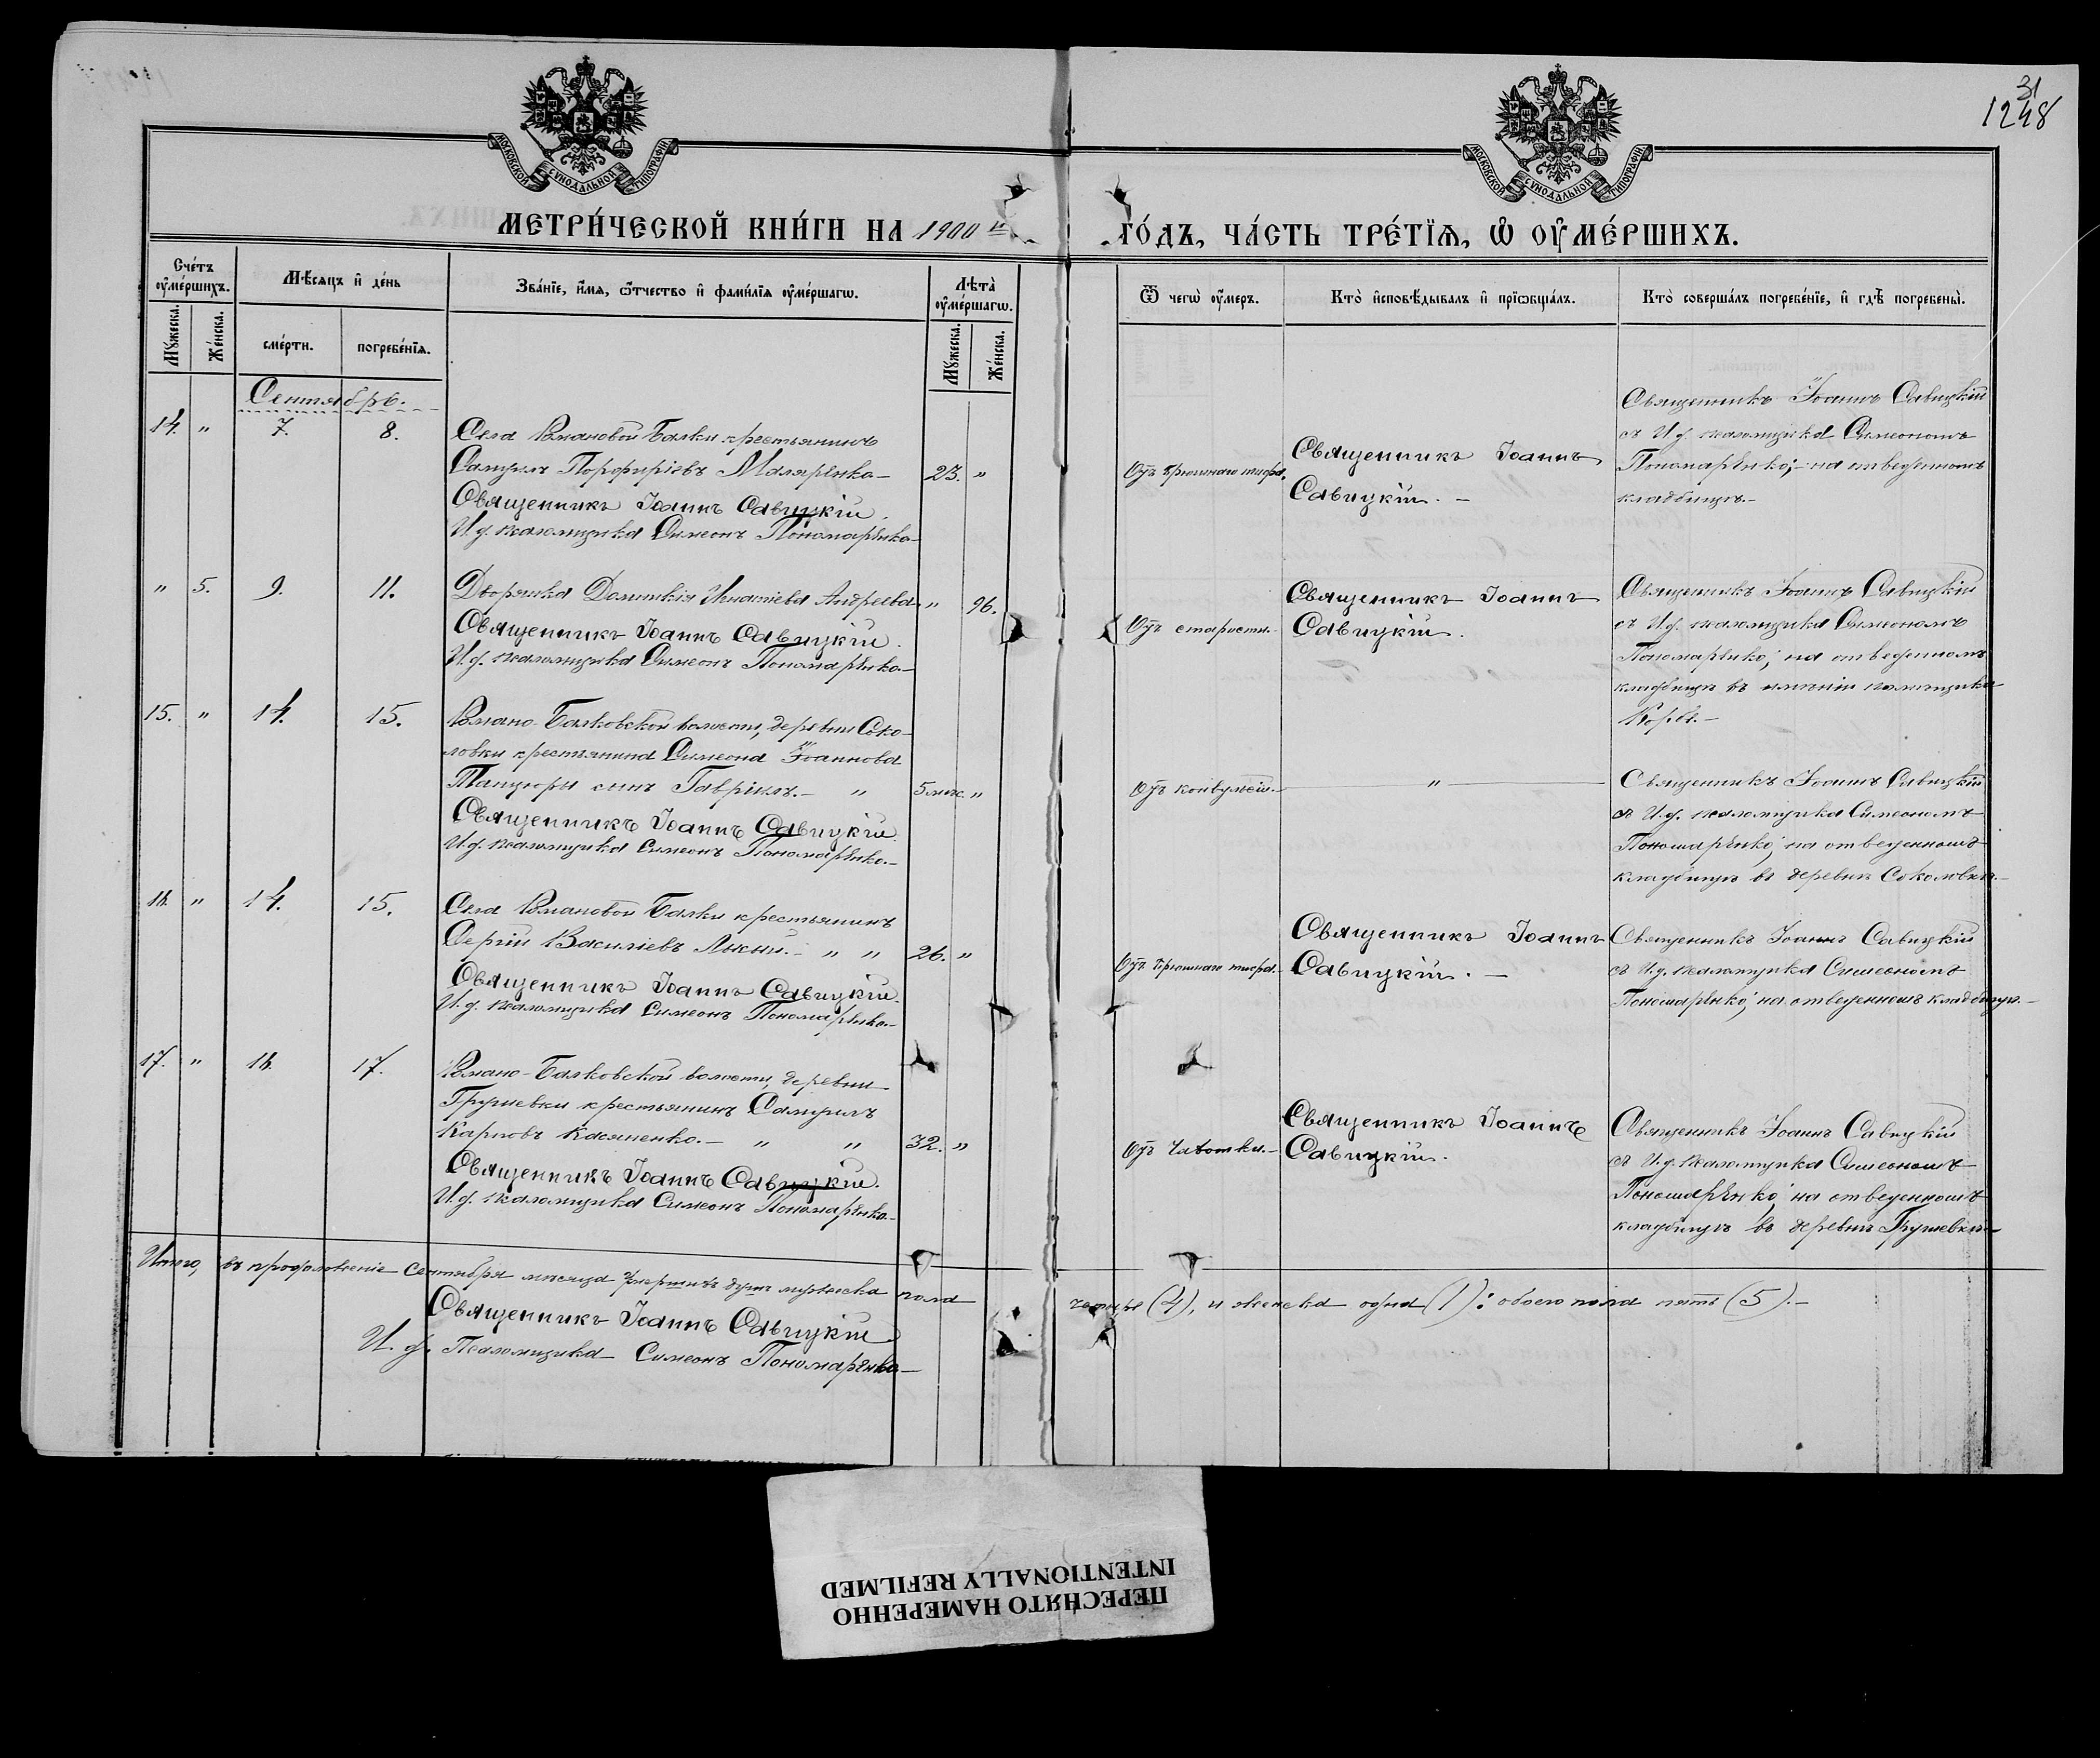 31
1248
МОСКОВСКОЙ СѴНОДАЛЬНОЙ ТИПОГРАФІИ
МОСКОВСКОЙ СѴНОДАЛЬНОЙ ТИПОГРАФІИ
МЕТРИ́ЧЕСКОЙ КНИ́ГИ НА 1900 й
ГО́ДЪ, ЧА́СТЬ ТРЕ́ТЇѦ, Ѡ ОУМЕ́РШИХЪ.
Сче́тъ оуме́ршихъ.
Му́жеска.
Же́нска.
Мѣ́сѧцъ и де́нь
сме́рти.
погребе́нїѧ.
Зва́нїе, и́мѧ, ѻ҆́тчество и фами́лїѧ оуме́ршагѡ.
Лѣ́та оуме́ршагѡ.
Му́жеска.
Же́нска.
Ѿ чегѡ̀ оу́меръ.
Кто̀ исповѣ́дывалъ и прїѡбща́лъ.
Кто̀ соверша́лъ погребе́нїе, и гдѣ̀ погребены̀.
Сентябрь.
14. " 7. 8. Села Романовой Балки крестьянинъ
Самуилъ Порфиріевъ Маляренко — 23. "
Священникъ Іоаннъ Савицкій.
И. д. псаломщика Симеонъ Пономаренко —
Отъ брюшнаго тифа.
Священникъ Іоаннъ
Савицкій. —
Священникъ Іоаннъ Савицкій
съ И. д. псаломщика Симеономъ
Пономаренко; — на отведенномъ
кладбищѣ. —
" 5. 9. 11. Дворянка Домникія Игнатіева Андреева " 96.
Священникъ Іоаннъ Савицкій.
И. д. псаломщика Симеонъ Пономаренко —
Отъ старости. —
Священникъ Іоаннъ
Савицкій.
Священникъ Іоаннъ Савицкій
съ И. д. псаломщика Симеономъ
Пономаренко; на отведенномъ
кладбищѣ въ имѣніи помѣщика
Корбе. —
15. " 14. 15. Романо-Балковской волости, деревни Соко-
ловки крестьянина Симеона Іоаннова
сынъ Гавріилъ. — " 5 мѣс. "
Священникъ Іоаннъ Савицкій
И. д. псаломщика Симеонъ Пономаренко. —
Отъ конвульсій. —
"
Священникъ Іоаннъ Савицкій
съ И. д. псаломщика Симеономъ
Пономаренко; на отведенномъ
кладбищѣ въ деревнѣ Соколовкѣ. —
16. " 14. 15. Села Романовой Балки крестьянинъ
Сергій Василіевъ — " " 26. "
Священникъ Іоаннъ Савицкій.
И. д. псаломщика Симеонъ Пономаренко. —
Отъ брюшнаго тифа. —
Священникъ Іоаннъ
Савицкій. —
Священникъ Іоаннъ Савицкій
съ И. д. псаломщика Симеономъ
Пономаренко; на отведенномъ кладбищѣ. —
17. " 16. 17. Романо-Балковской волости, деревни
Грушевки крестьянинъ Самуилъ
Карповъ Касяненко. — " " 32. "
Священникъ Іоаннъ Савицкій.
И. д. псаломщика Симеонъ Пономаренко —
Отъ чахотки. —
Священникъ Іоаннъ
Савицкій.
Священникъ Іоаннъ Савицкій
съ И. д. псаломщика Симеономъ
Пономаренко; на отведенномъ
кладбищѣ въ деревнѣ Грушевкѣ. —
Итого, въ продолженіе Сентября мѣсяца умершихъ душъ мужеска пола
четыре (4), и женска одна (1): обоего пола пять (5). —
Священникъ Іоаннъ Савицкій
И. д. Псаломщика Симеонъ Пономаренко —
ПЕРЕСНЯТО НАМЕРЕННО
INTENTIONALLY REFILMED